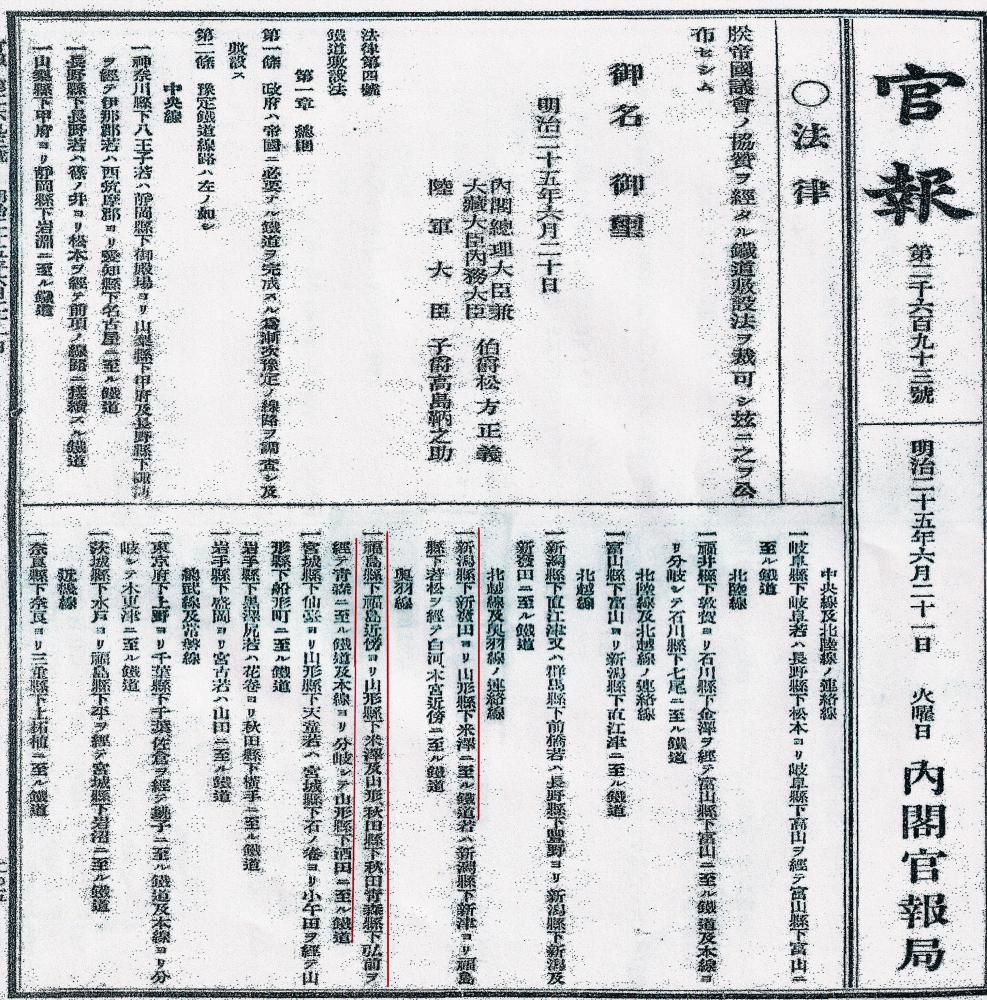 官報
第二千六百九十三號
明治二十五年六月二十一日 火曜日
內閣官報局
○法律
朕帝國議會ノ協贊ヲ經タル鐵道敷設法ヲ裁可シ玆ニ之ヲ公
布セシム
御名御璽
明治二十五年六月二十日
內閣總理大臣兼
大藏大臣內務大臣 伯爵松方正義
陸軍大臣 子爵高島鞆之助
法律第四號
鐵道敷設法
第一章 總則
第一條 政府ハ帝國ニ必要ナル鐵道ヲ完成スル爲漸次豫定ノ線路ヲ調査シ及
敷設ス
第二條 豫定鐵道線路ハ左ノ如シ
中央線
一神奈川縣下八王子若ハ靜岡縣下御殿場ヨリ山梨縣下甲府及長野縣下諏訪
ヲ經テ伊那郡若ハ西筑摩郡ヨリ愛知縣下名古屋ニ至ル鐵道
一長野縣下長野若ハ篠ノ井ヨリ松本ヲ經テ前項ノ線路ニ接續スル鐵道
一山梨縣下甲府ヨリ靜岡縣下岩淵ニ至ル鐵道
中央線及北陸線ノ連絡線
一岐阜縣下岐阜若ハ長野縣下松本ヨリ岐阜縣下高山ヲ經テ富山縣下富山ニ
至ル鐵道
北陸線
一福井縣下敦賀ヨリ石川縣下金澤ヲ經テ富山縣下富山ニ至ル鐵道及本線ヨ
リ分岐シテ石川縣下七尾ニ至ル鐵道
北陸線及北越線ノ連絡線
一富山縣下富山ヨリ新潟縣下直江津ニ至ル鐵道
北越線
一新潟縣下直江津又ハ群馬縣下前橋若ハ長野縣下豐野ヨリ新潟縣下新潟及
新發田ニ至ル鐵道
北越線及奧羽線ノ連絡線
一新潟縣下新發田ヨリ山形縣下米澤ニ至ル鐵道若ハ新潟縣下新津ヨリ福島
縣下若松ヲ經テ白河、本宮近傍ニ至ル鐵道
奧羽線
一福島縣下福島近傍ヨリ山形縣下米澤及山形、秋田縣下秋田靑森縣下弘前ヲ
經テ靑森ニ至ル鐵道及本線ヨリ分岐シテ山形縣下酒田ニ至ル鐵道
一宮城縣下仙臺ヨリ山形縣下天童若ハ宮城縣下石ノ卷ヨリ小牛田ヲ經テ山
形縣下舟形町ニ至ル鐵道
一岩手縣下黑澤尻若ハ花卷ヨリ秋田縣下橫手ニ至ル鐵道
一岩手縣下盛岡ヨリ宮古若ハ山田ニ至ル鐵道
總武線及常磐線
一東京府下上野ヨリ千葉縣下千葉佐倉ヲ經テ銚子ニ至ル鐵道及本線ヨリ分
岐シテ木更津ニ至ル鐵道
一茨城縣下水戶ヨリ福島縣下平ヲ經テ宮城縣下岩沼ニ至ル鐵道
近畿線
一奈良縣下奈良ヨリ三重縣下上柘植ニ至ル鐵道